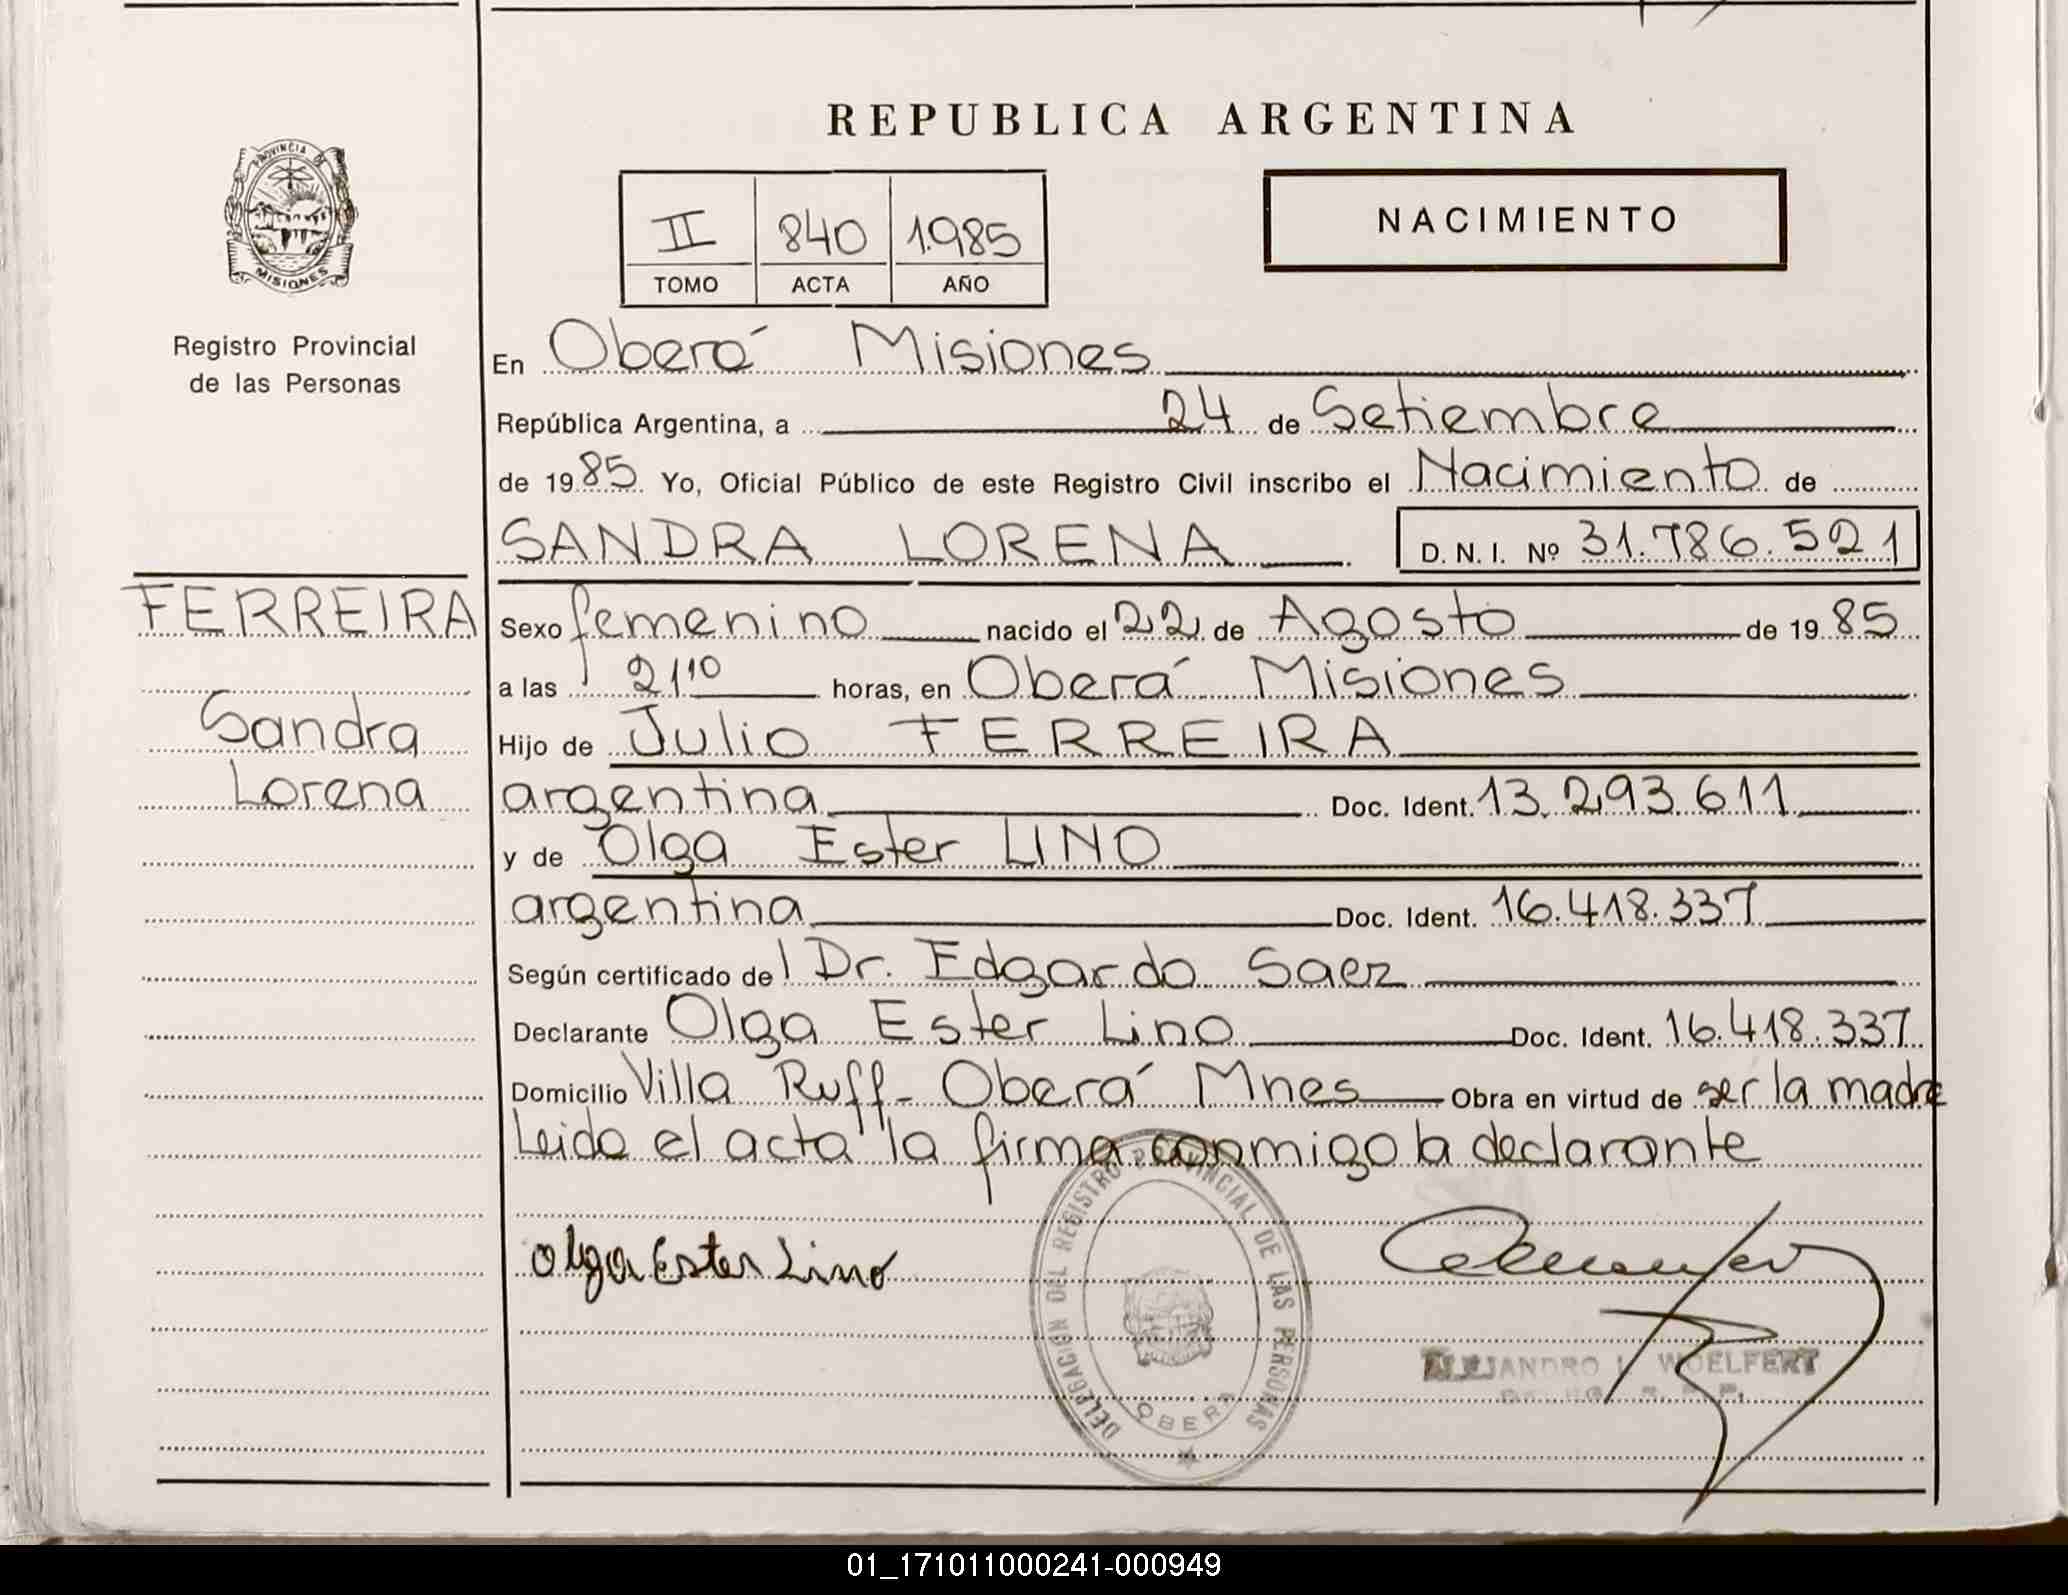 REPUBLICA ARGENTINA
PROVINCIA DE
MISIONES
Registro Provincial
de las Personas
NACIMIENTO
II 840 1.985
TOMO ACTA AÑO
En Oberá Misiones
República Argentina, a 24 de Setiembre
de 1985 Yo, Oficial Público de este Registro Civil inscribo el Nacimiento de
SANDRA LORENA D. N. I. Nº 31.786.521
FERREIRA
Sandra
Lorena
Sexo femenino nacido el 22 de Agosto de 1985
a las 21 10 horas, en Oberá Misiones
Hijo de Julio FERREIRA
argentina Doc. Ident. 13.293.611
y de Olga Ester LINO
argentina Doc. Ident. 16.418.337
Según certificado del Dr. Edgardo Saez
Declarante Olga Ester Lino Doc. Ident. 16.418.337
Domicilio Villa Ruff - Oberá Mnes Obra en virtud de ser la madre
Leida el acta la firma conmigo la declarante
Olga Ester Lino
DELEGACIÓN DEL REGISTRO PROVINCIAL DE LAS PERSONAS
OBERA
ALEJANDRO L. WOELFERT
01_171011000241-000949